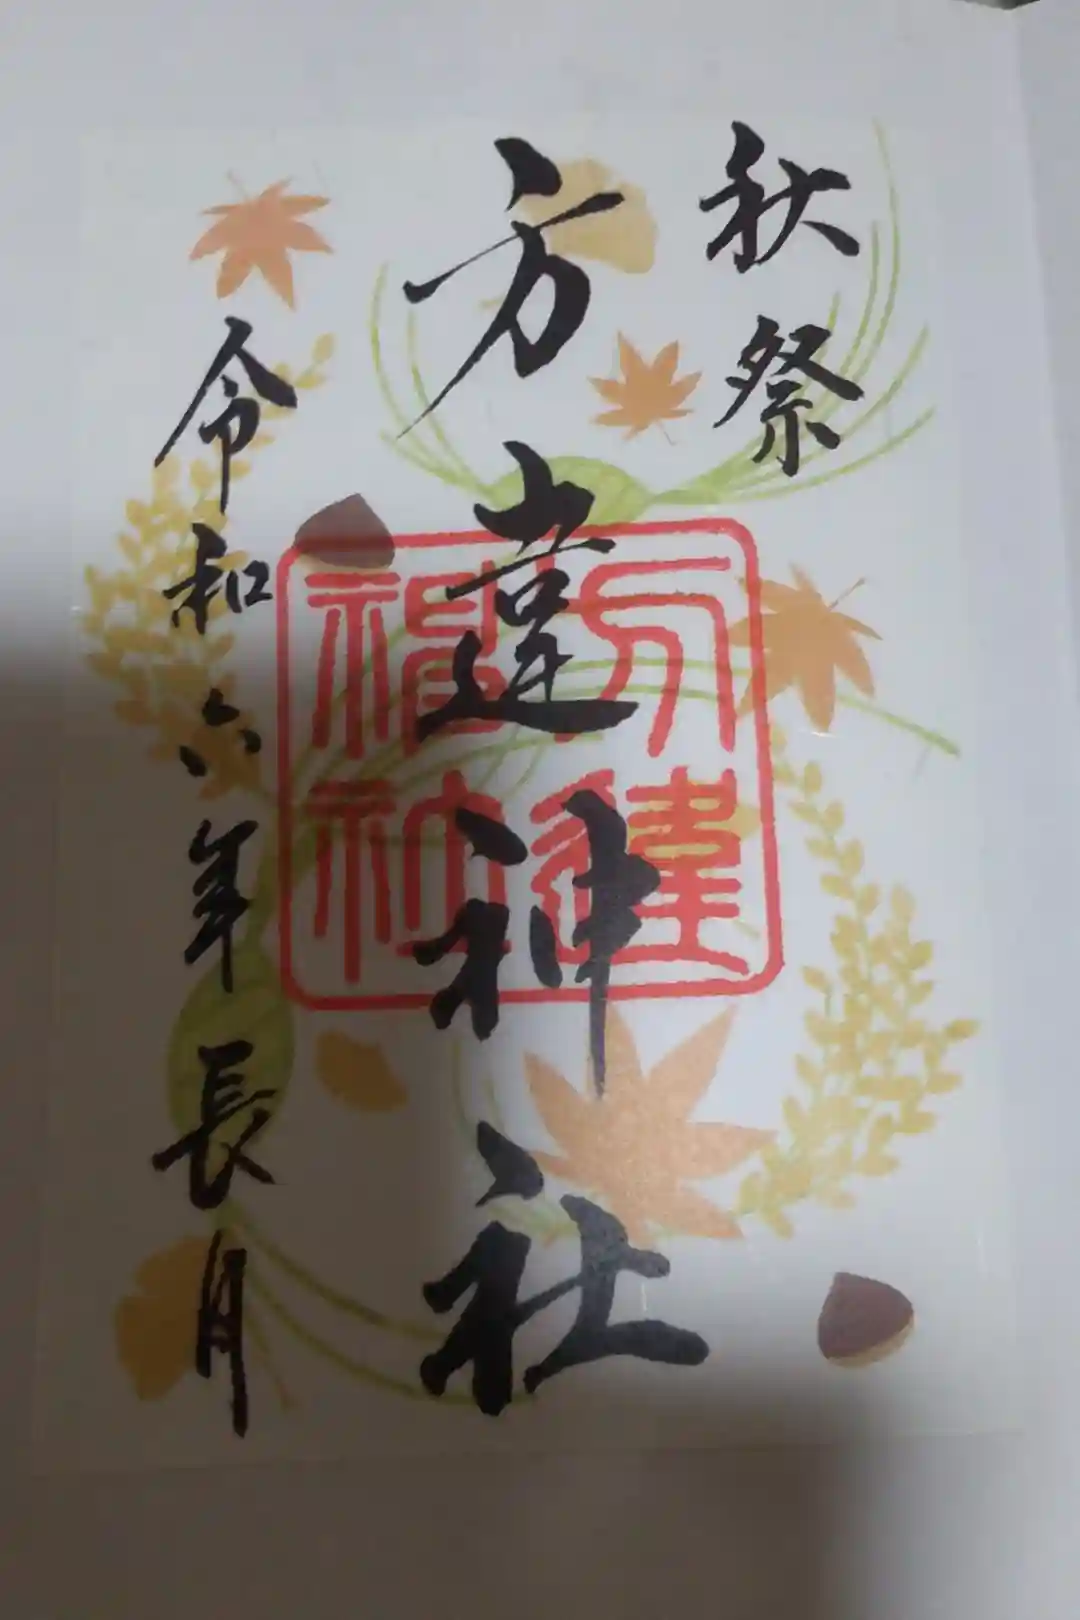 秋祭
方違神社
方違
神社
令和六年長月